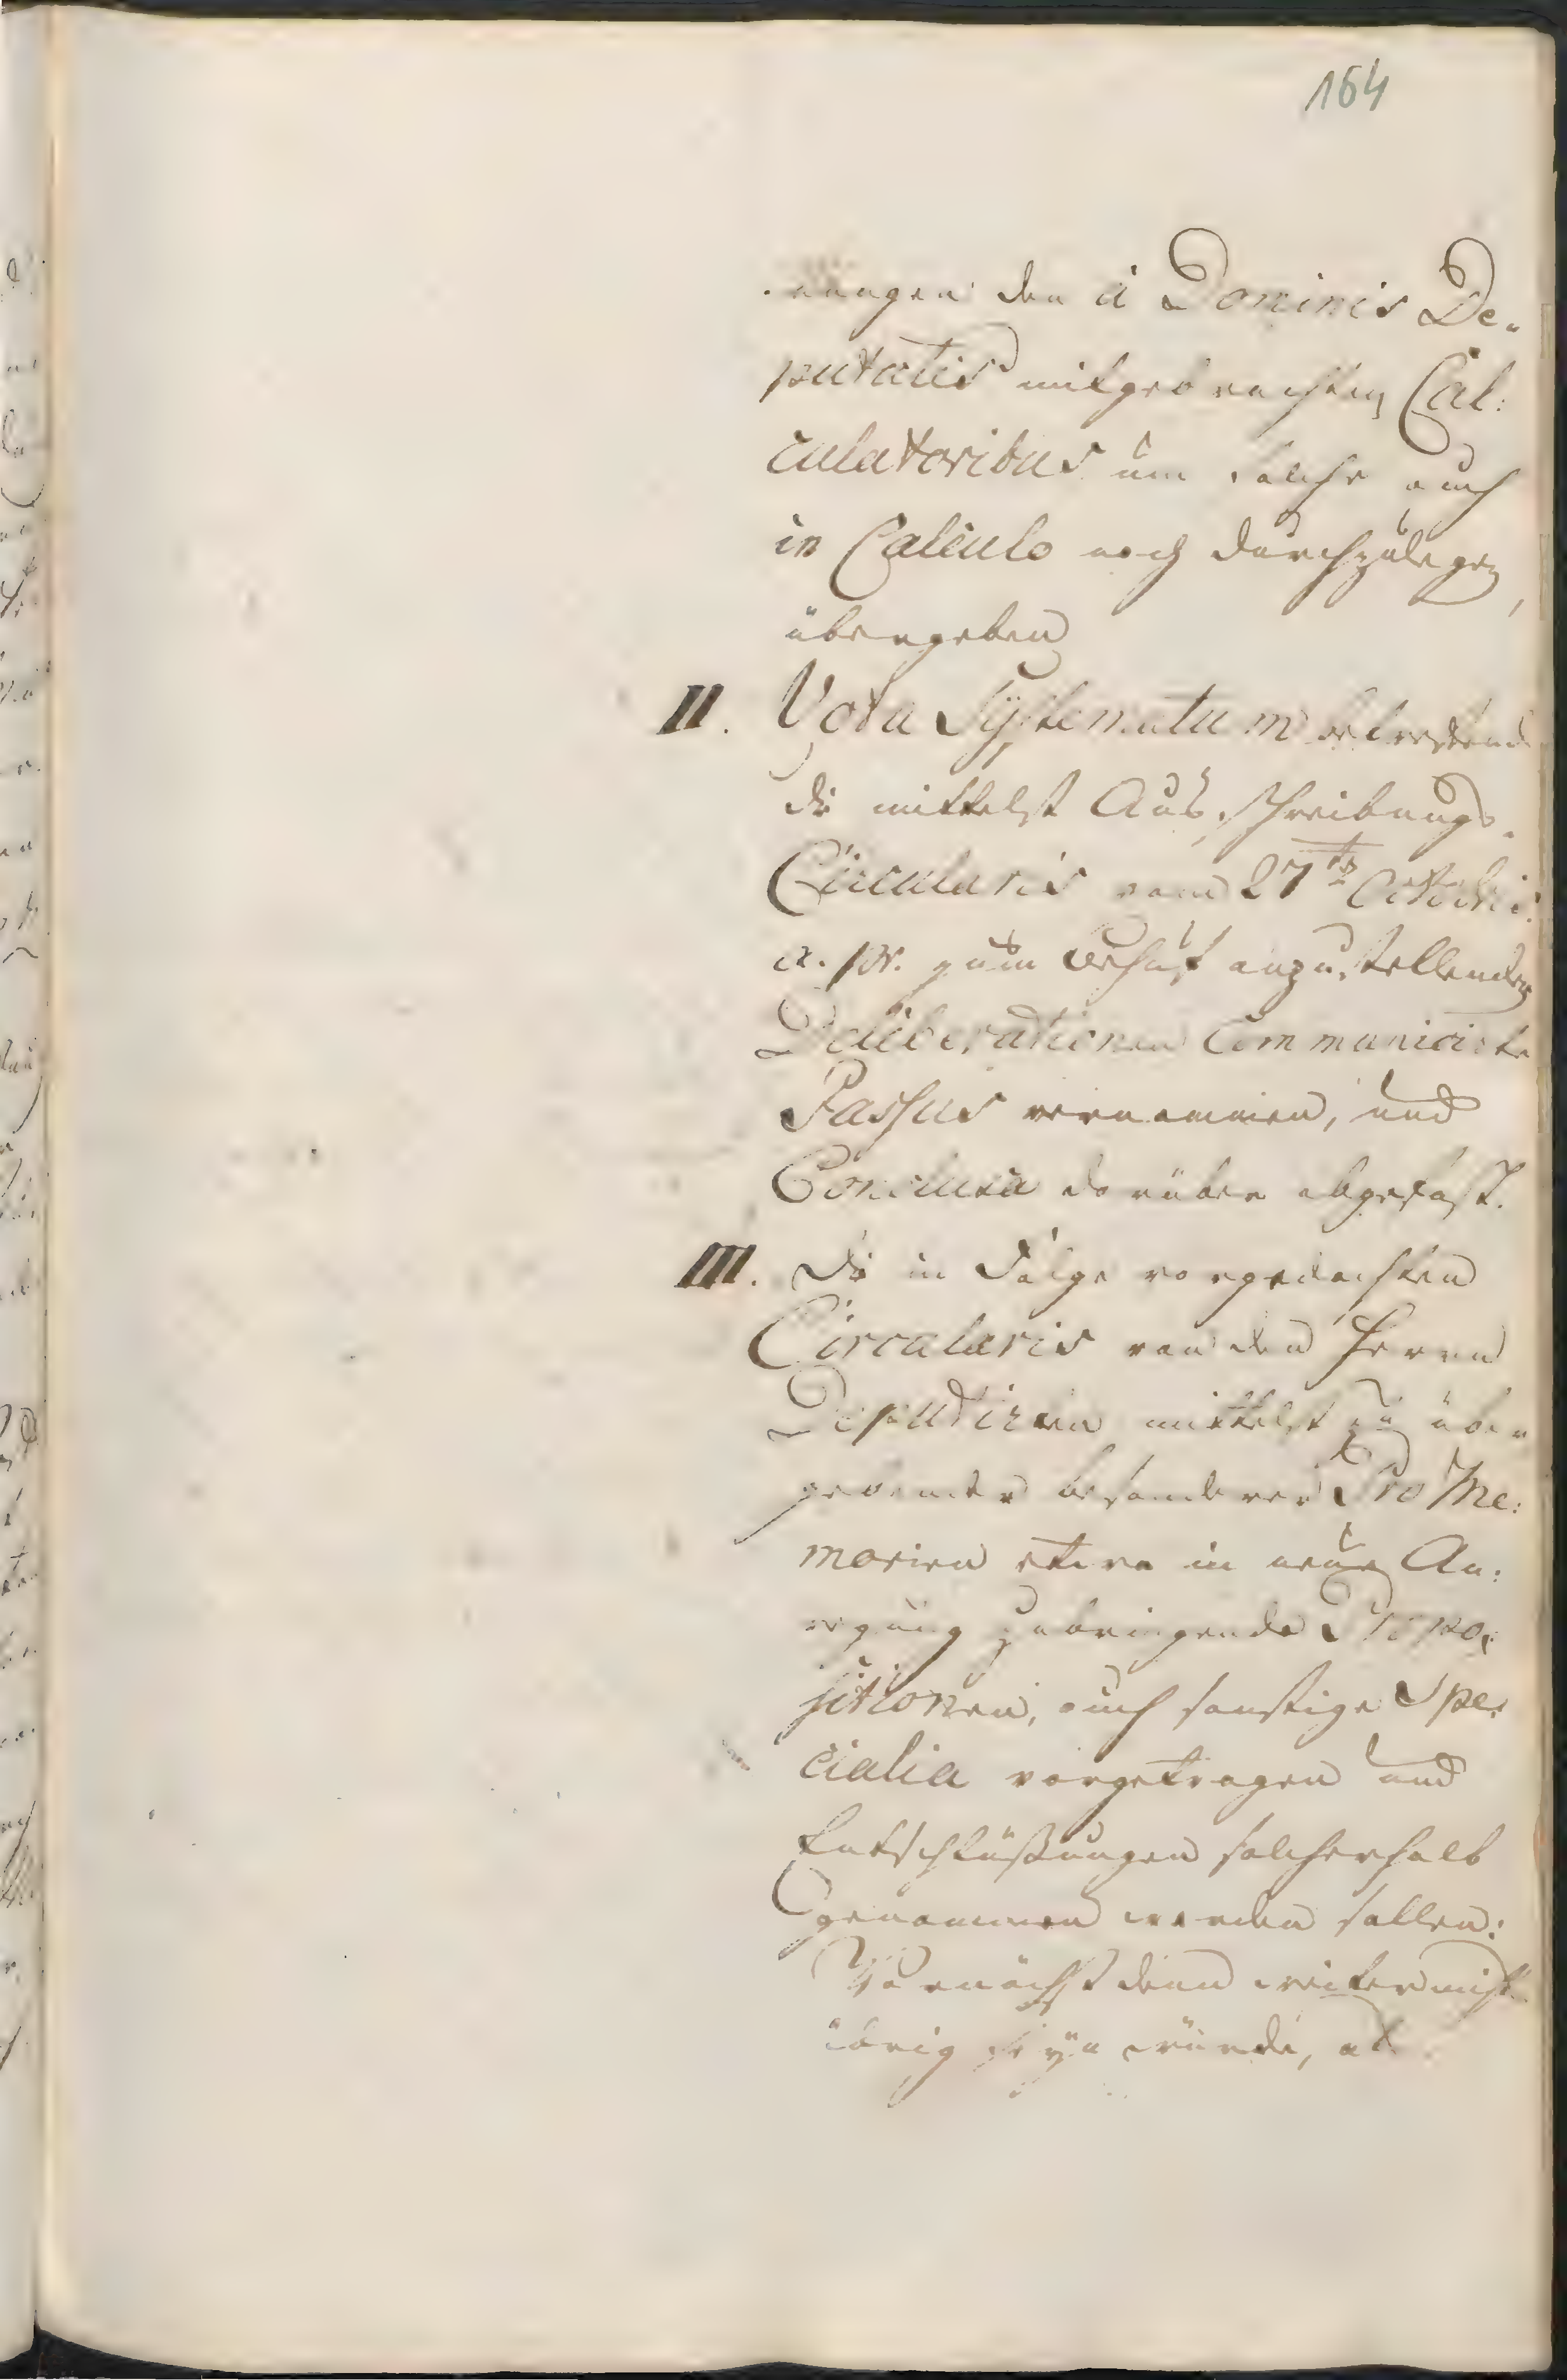 164
nungen den à Dominis De-
putatis mitgebrachten Cal:
culatoribus um solche auch
in Calculo noch durchzulegen,
übergeben
II. Vota Systematum betreffend
die mittelst Ausschreibungs-
Circularis vom 27ten Octobris
a. pr. zum Behuf anzustellenden
Deliberationen Communicirte
Passus vernommen, und
Conclusa darüber abgefaßt.
III. Die in Folge vorgedachten
Circularis von den Herren
Deputirten mittelst zu über
gebender besonderer Pro Me:
morien etwa in neue An:
regung zubringende Propo:
sitionen, auch sonstige Spe:
cialia vorgetragen und
Entschlüßungen solcherhalb
genommen werden sollen:
Wornächst denn weiter nicht
übrig seyn würde, als